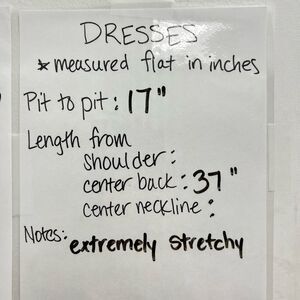 DRESSES
* measured flat in inches
Pit to pit: 17"
Length from
shoulder:
center back: 37"
center neckline:
Notes: extremely stretchy